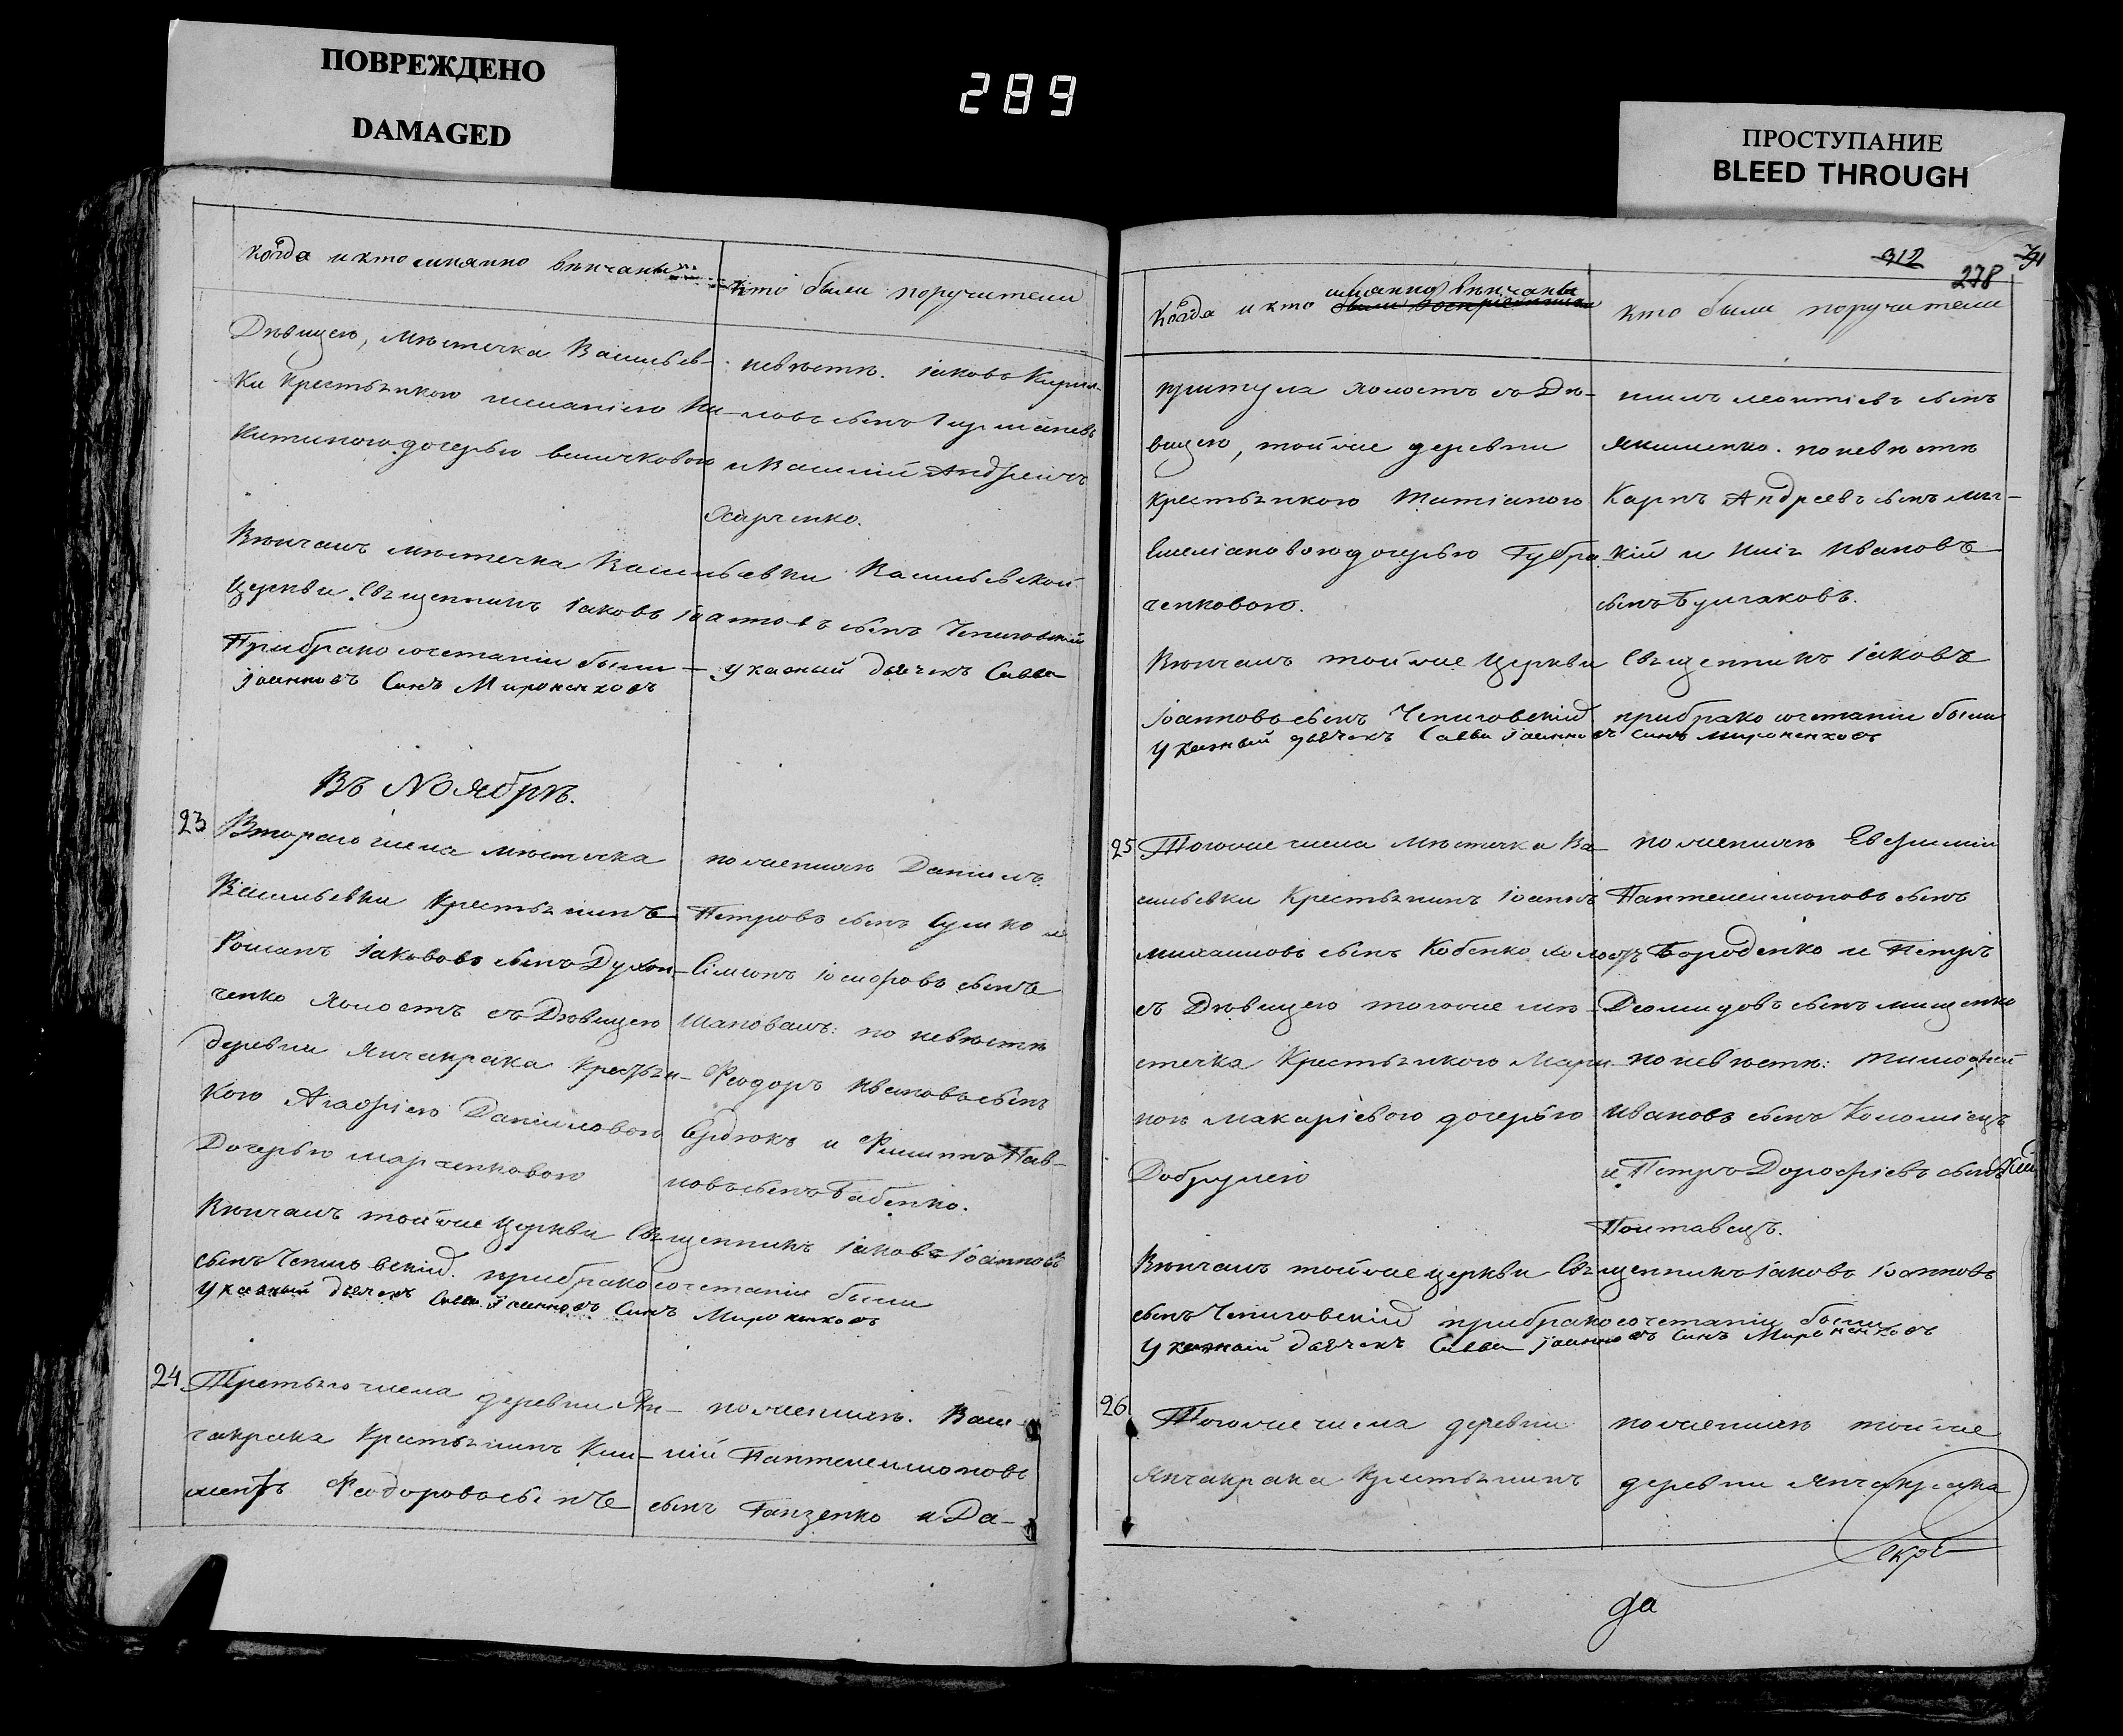 ПОВРЕЖДЕНО
DAMAGED
289
ПРОСТУПАНИЕ
BLEED THROUGH
когда и кто имянно вѣнчаны
кто были поручители
Дѣвицею, мѣстечка Васильев-
ки крестьянкою Ни-
китиною дочерью
невѣстѣ. Іаковъ Кирил-
ловъ сынъ
и Василій Андреичъ
Харченко.
Вѣнчалъ мѣстечка Васильевки Васильевской
Церкви Священникъ Іаковъ Іоанновъ сынъ Чепиговскій
При бракосочетаніи были — указный дьячекъ Савва
Іаанновъ Синъ Мироненковъ
Въ Ноябрѣ.
23
Втораго числа мѣстечка
Васильевки Крестьянинъ
Романъ Іакововъ сынъ
ченко холостъ съ Дѣвицею
деревни Янчакрака Крестьян-
кою Агафіею Даниловою
Дочерью Марченковою
по женихѣ Даніилъ
Петровъ сынъ Сушко и
Сімеонъ Іосифовъ сынъ
Шаповалъ: по невѣстѣ
Феодоръ Ивановъ сынъ
Сердюкъ и Филиппъ Пав-
ловъ сынъ Бабенко.
Вѣнчалъ той же Церкви Священникъ Іаковъ Іоанновъ
сынъ Чепиговскій. при бракосочетаніи были
указный дьячекъ Савва Іаанновъ Синъ Мироненковъ
24
Третьяго числа деревни Ян-
чакрака Крестьянинъ Кли-
ментъ Феодоровъ сынъ
по женихѣ. Васи-
лій Пантелеимоновъ
сынъ Ганзенко и Да-
312
278
когда и кто были воспріемники
имянно вѣнчаны
кто были поручители
притула холостъ съ Дѣ-
вицею, той же деревни
крестьянкою Татіаною
Емеліановою дочерью Губра-
ченковою.
ниилъ Леонтіевъ сынъ
Якименко. по невѣстѣ
Карпъ Андреевъ сынъ
кій и Илія Ивановъ
сынъ Булгаковъ.
Вѣнчалъ той же Церкви Священникъ Іаковъ
Іоанновъ сынъ Чепиговскій при бракосочетаніи были
указный дьячекъ Савва Іаанновъ синъ Мироненковъ
25
Того же числа мѣстечка Ва-
сильевки Крестьянинъ Іоаннъ
Михаиловъ сынъ Кобенко холостъ
съ Дѣвицею того же мѣ-
стечка Крестьянкою Мари-
ною Макаріевою дочерью
Добрулею
по женихѣ Евфимій
Пантелеимоновъ сынъ
Бороденко и Петръ
Деомидовъ сынъ Мищенко
по невѣстѣ: Тимофей
Ивановъ сынъ Коломіецъ
и Петръ Дорофіевъ сынъ
Полтавецъ.
Вѣнчалъ той же церкви Священникъ Іаковъ Іоанновъ
сынъ Чепиговскій при бракосочетаніи были
указной дьячекъ Савва Іаанновъ Синъ Мироненковъ
26
Того же числа деревни
Янчакрака Крестьянинъ
по женихѣ той же
деревни Янчакрака
скрѣ
да